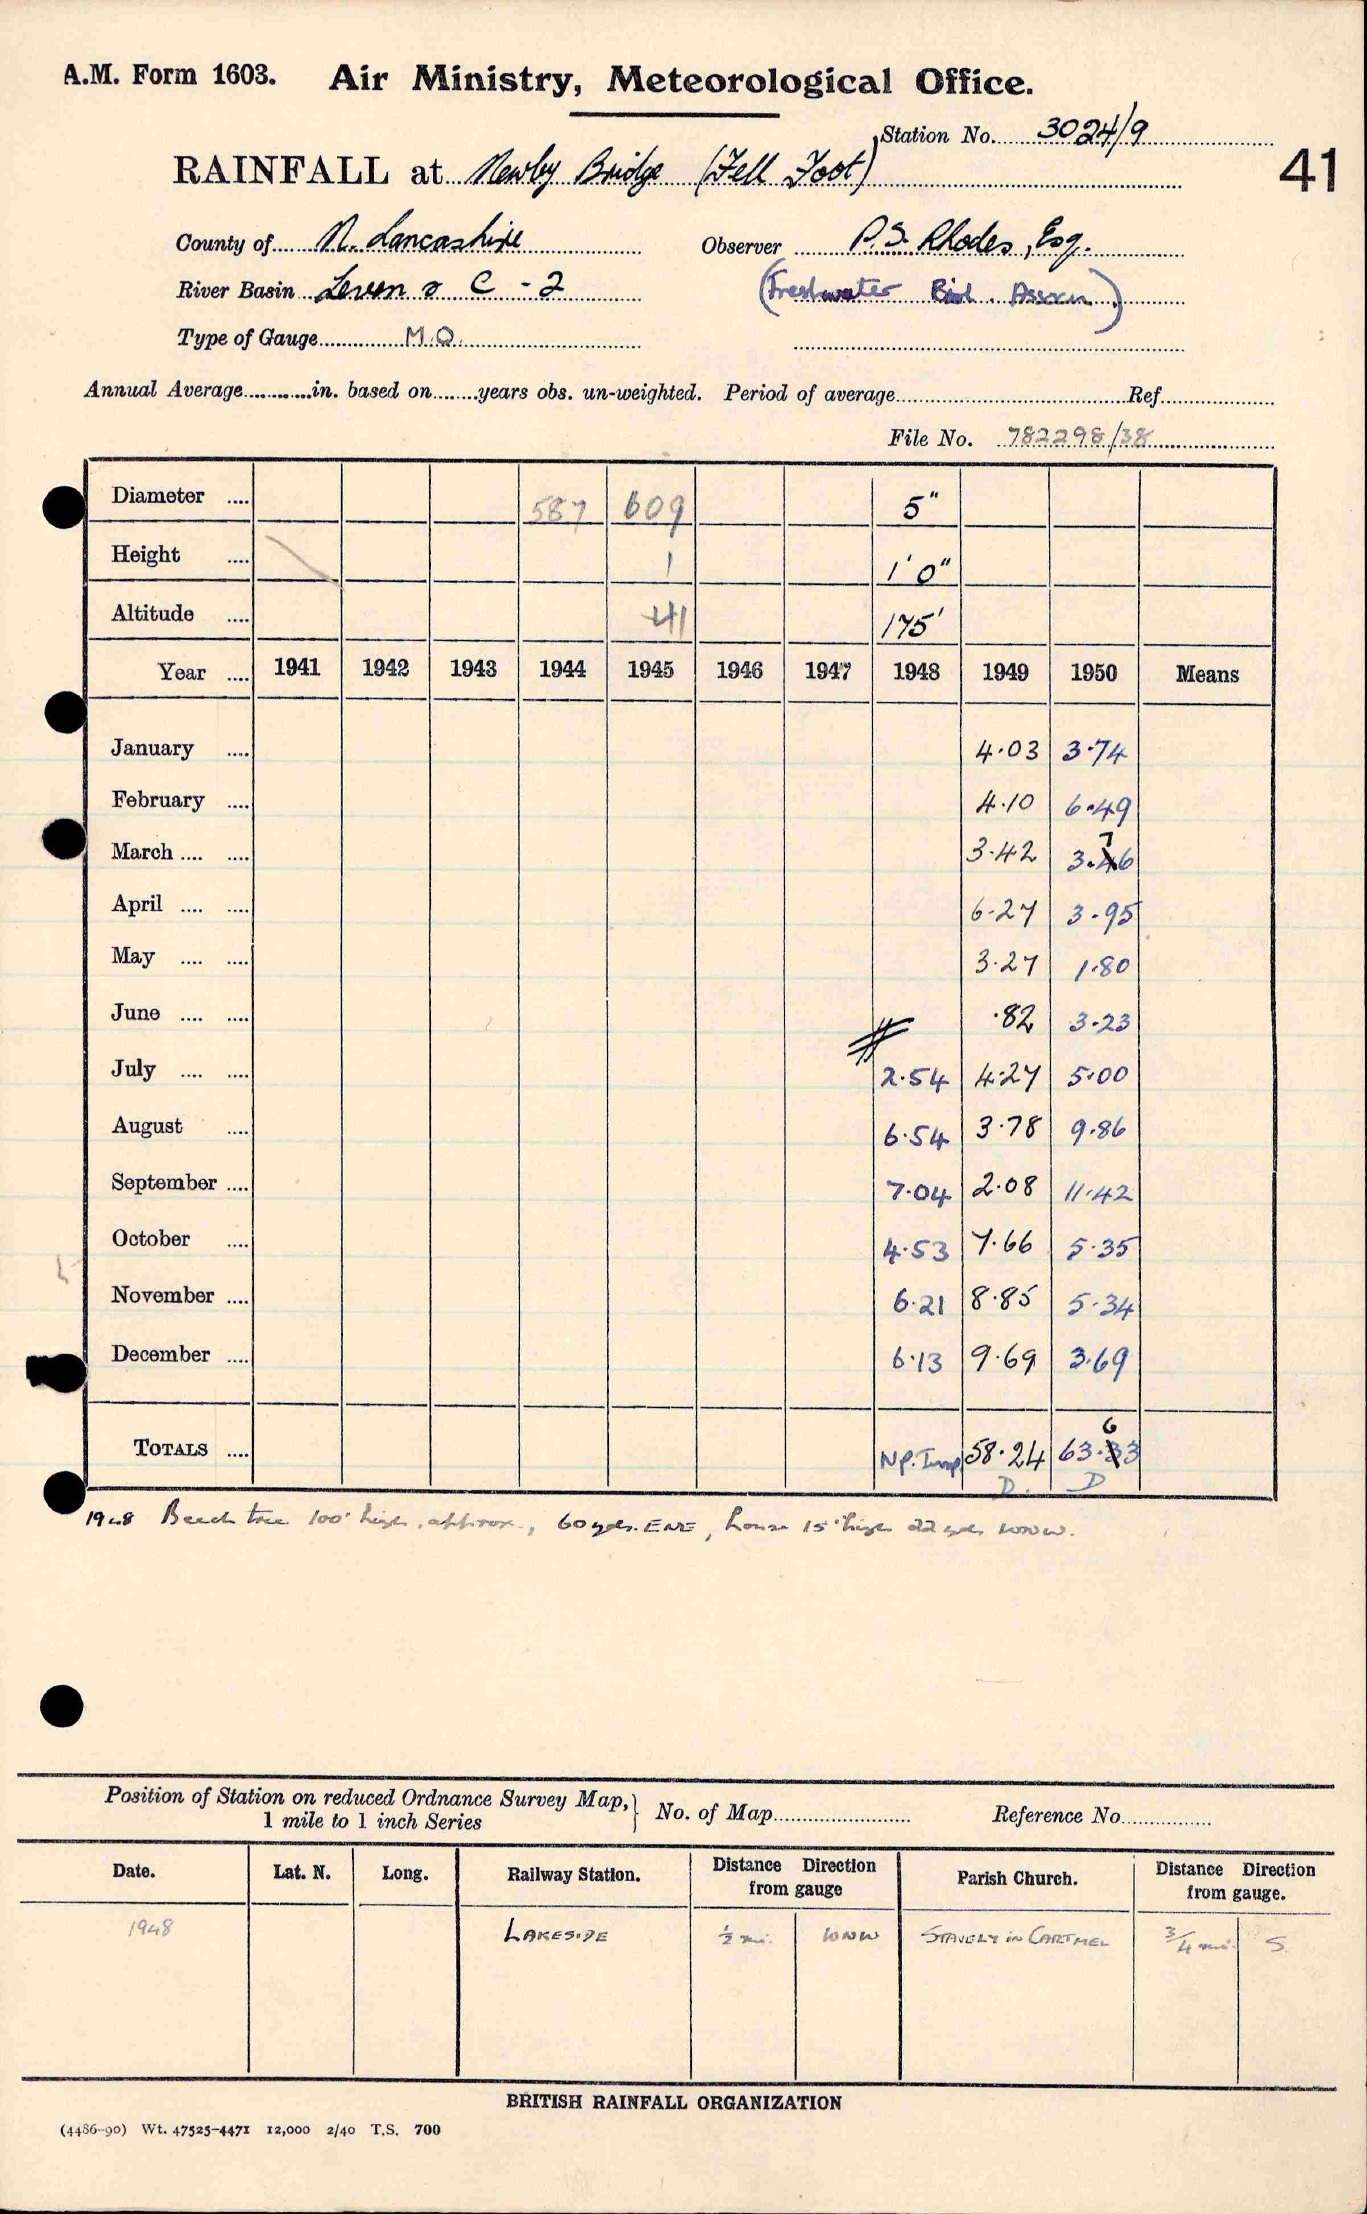 A.M. Form 1603. Air Ministry, Meteorological Office.
Station No. 3024/9
41
RAINFALL at Newby Bridge (Fell Foot)
County of N. Lancashire Observer P.S. Rhodes, Esq.
River Basin Leven & C - 2 (Freshwater Biol. Assocn.)
Type of Gauge M.O.
Annual Average in. based on years obs. un-weighted. Period of average Ref
File No. 782298/38
Diameter 587 609 5"
Height 1 1' 0"
Altitude 41 175'
Year 1941 1942 1943 1944 1945 1946 1947 1948 1949 1950 Means
January 4.03 3.74
February 4.10 6.49
March 3.42 3.76
April 6.27 3.95
May 3.27 1.80
June .82 3.23
July 2.54 4.27 5.00
August 6.54 3.78 9.86
September 7.04 2.08 11.42
October 4.53 7.66 5.35
November 6.21 8.85 5.34
December 6.13 9.69 3.69
TOTALS Np. Imp. 58.24 63.63
D. D
1948 Beech tree 100' high, approx., 60 yds. ENE, house 15' high 22 yds WNW.
Position of Station on reduced Ordnance Survey Map, No. of Map Reference No.
1 mile to 1 inch Series
Date. Lat. N. Long. Railway Station. Distance Direction from gauge Parish Church. Distance Direction from gauge.
1948 LAKESIDE ½ mi. WNW STAVELY in CARTMEL ¾ mi S
BRITISH RAINFALL ORGANIZATION
(4486-90) Wt. 47525-4471 12,000 2/40 T.S. 700